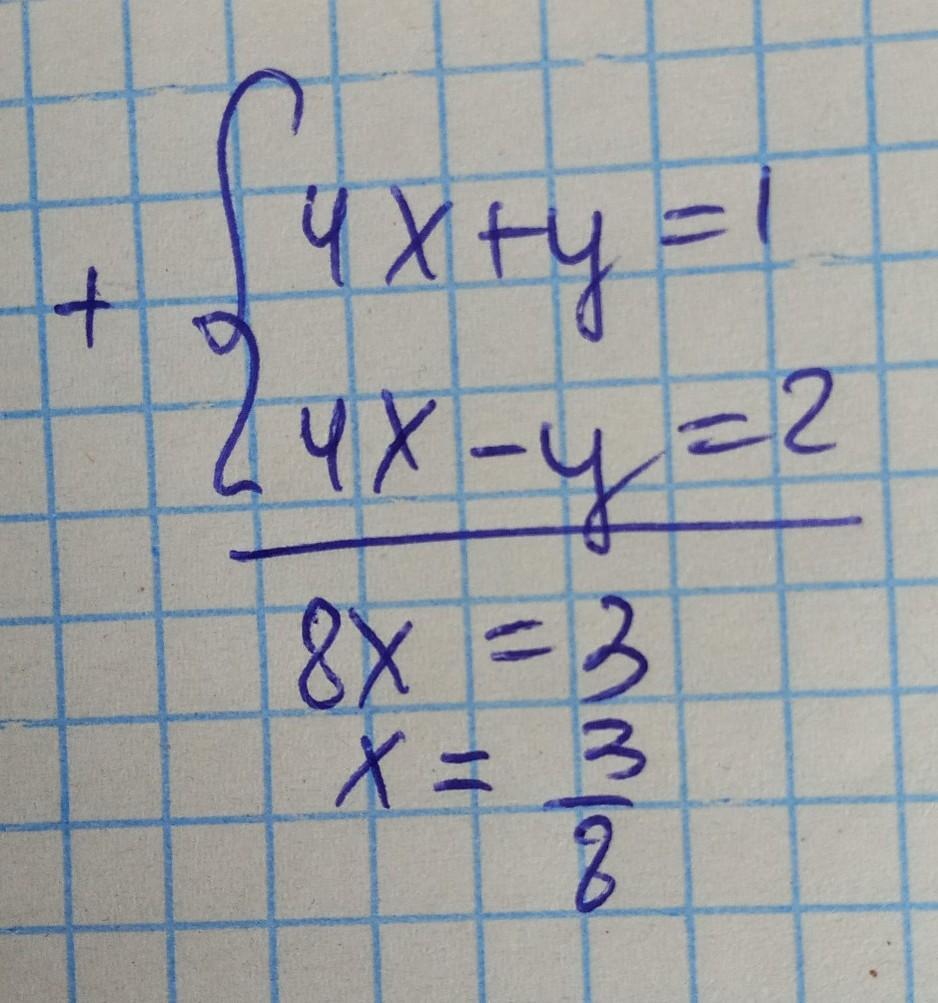 4x+y=1
+
4x-y=2
8x = 3
x = 3/8